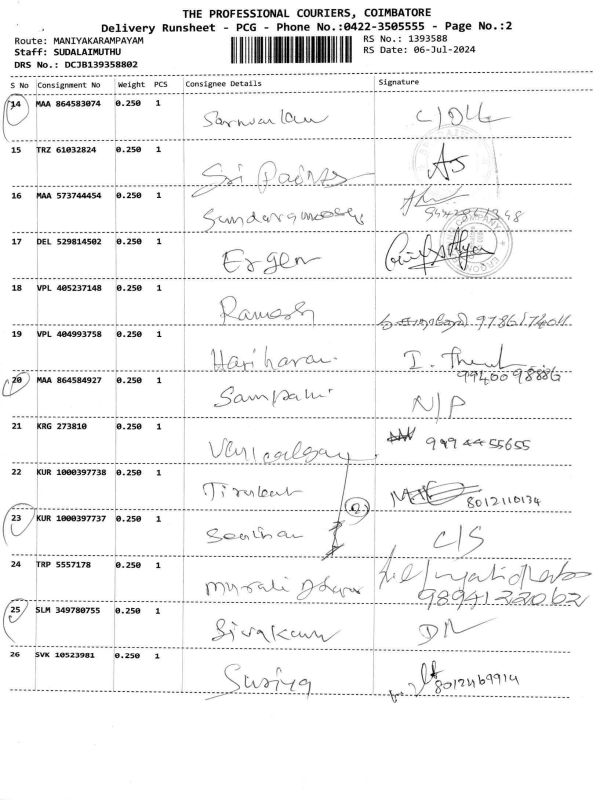 THE PROFESSIONAL COURIERS, COIMBATORE
Delivery Runsheet - PCG - Phone No.:0422-3505555 - Page No.:2
Route: MANIYAKARAMPAYAM RS No.: 1393588
Staff: SUDALAIMUTHU RS Date: 06-Jul-2024
DRS No.: DCJB139358802
S No Consignment No Weight PCS Consignee Details Signature
14 MAA 864583074 0.250 1
15 TRZ 61032824 0.250 1 Sri AS
16 MAA 573744454 0.250 1
17 DEL 529814502 0.250 1 COMPANY
18 VPL 405237148 0.250 1 Ramesh 9786174011
19 VPL 404993758 0.250 1 Hariharan. I. 9940098886
20 MAA 864584927 0.250 1 N/P
21 KRG 273810 0.250 1 9994455655
22 KUR 1000397738 0.250 1 8012110134
23 KUR 1000397737 0.250 1 2 C/S
24 TRP 5557178 0.250 1 Murali 9894132062
25 SLM 349780755 0.250 1 DL
26 SVK 10523981 0.250 1 Suriya for 8012469914